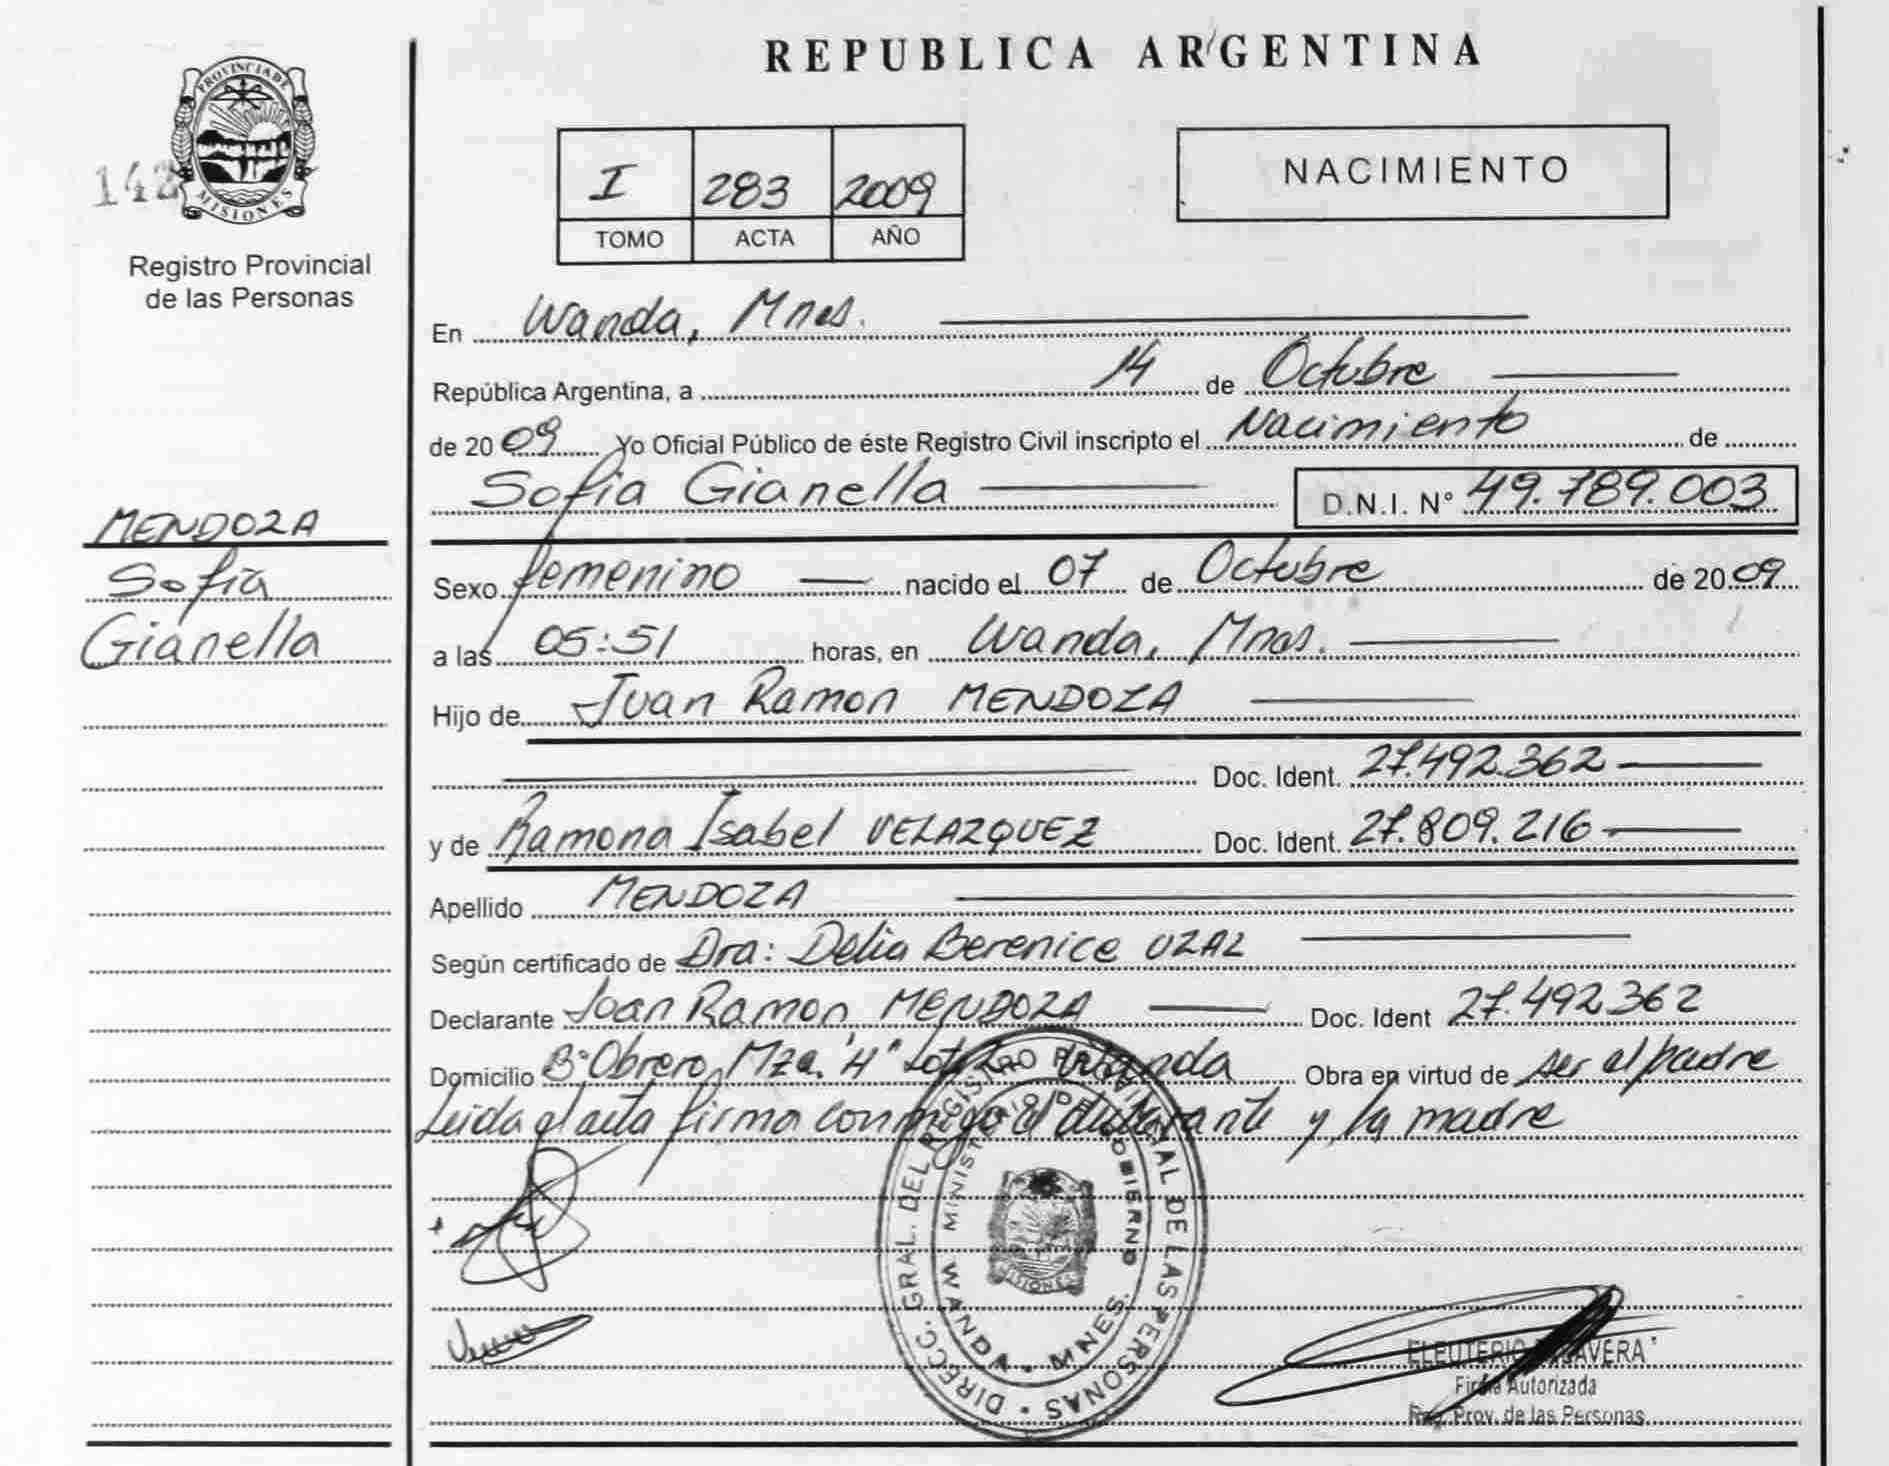 REPUBLICA ARGENTINA
PROVINCIA DE
MISIONES
142
Registro Provincial
de las Personas
I 283 2009
TOMO ACTA AÑO
NACIMIENTO
En Wanda, Mnes.
República Argentina, a 14 de Octubre
de 2009 Yo Oficial Público de éste Registro Civil inscripto el Nacimiento de
Sofía Gianella D.N.I. N° 49.789.003
MENDOZA
Sofía
Gianella
Sexo femenino nacido el 07 de Octubre de 2009
a las 05:51 horas, en Wanda, Mnes.
Hijo de Juan Ramon MENDOZA
Doc. Ident. 27.492.362
y de Ramona Isabel VELAZQUEZ Doc. Ident. 27.809.216
Apellido MENDOZA
Según certificado de Dra: Delia Berenice UZAL
Declarante Juan Ramon MENDOZA Doc. Ident 27.492362
Domicilio B° Obrero Mza. "H" Wanda Obra en virtud de ser el padre
Leida el acta firma conmigo el declarante y la madre
DIRECC. GRAL. DEL REGISTRO PROVINCIAL DE LAS PERSONAS
MINISTERIO DE GOBIERNO
MISIONES
WANDA - MNES.
ELEUTERIO
Firma Autorizada
Reg. Prov. de las Personas